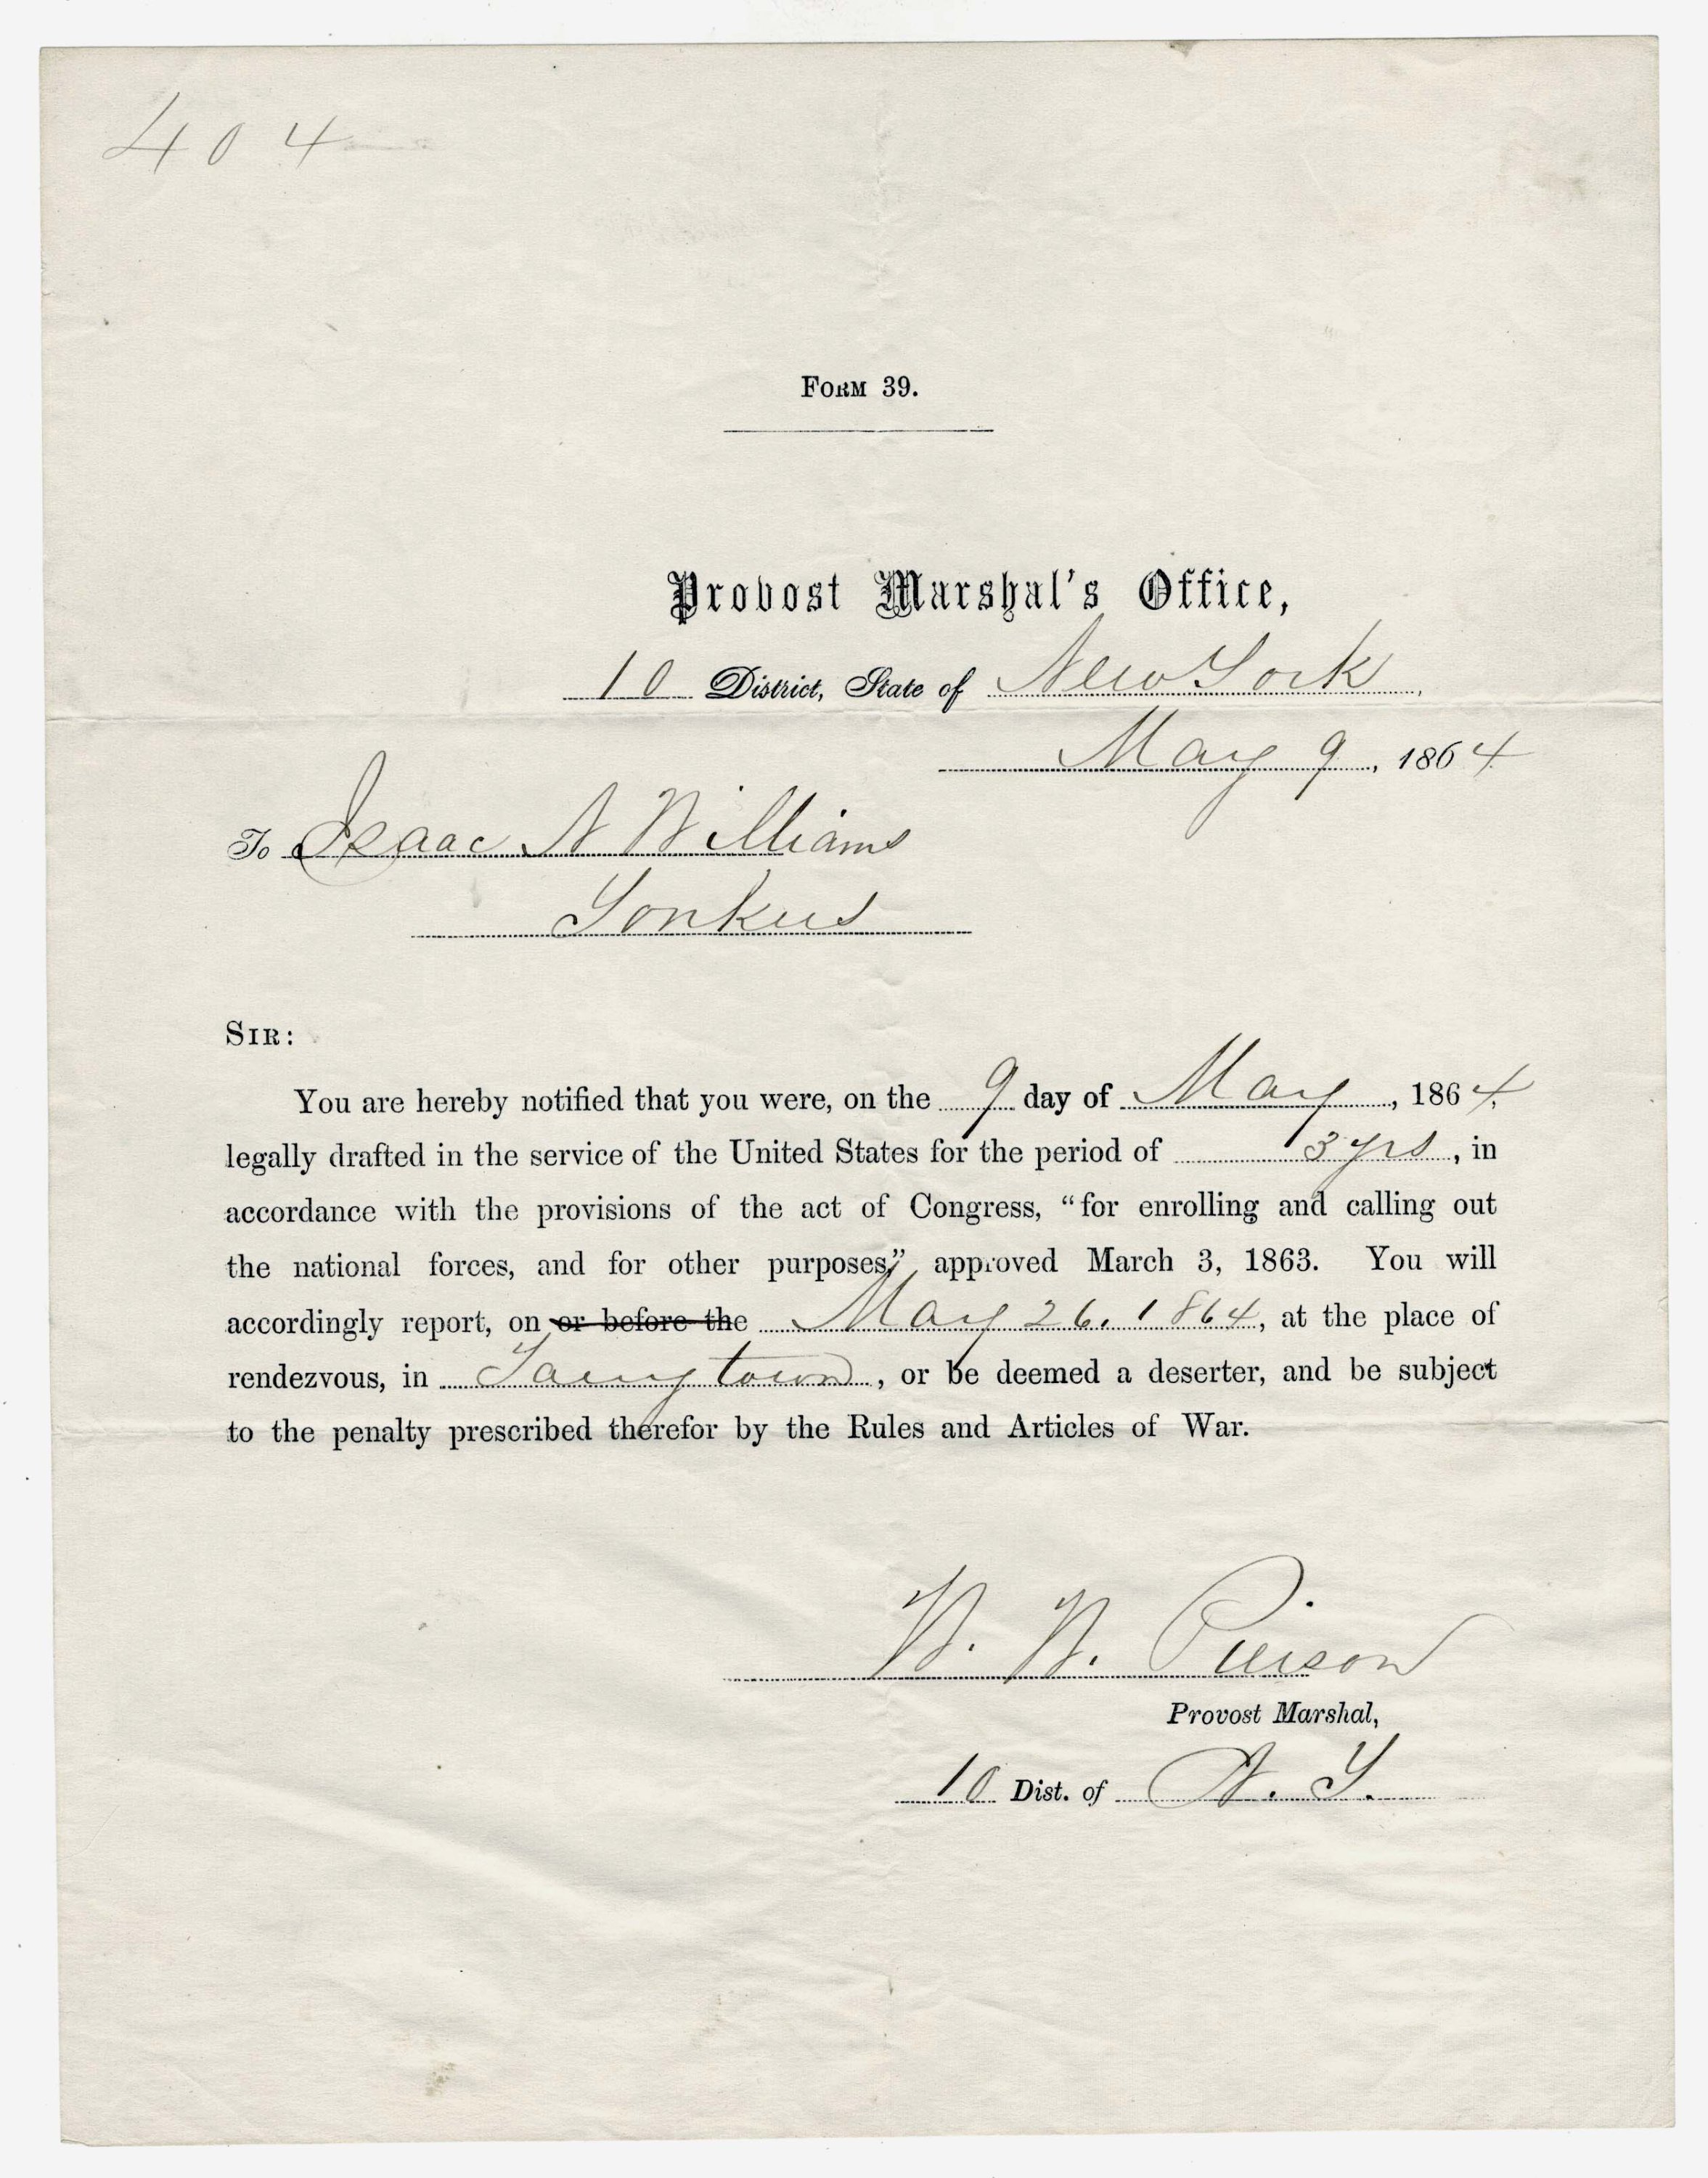 404
FORM 39.
Provost Marshal's Office,
10 District, State of New York.
May 9, 1864
To Isaac N Williams
Yonkers
SIR:
You are hereby notified that you were, on the 9 day of May, 1864,
legally drafted in the service of the United States for the period of 3 yrs, in
accordance with the provisions of the act of Congress, "for enrolling and calling out
the national forces, and for other purposes," approved March 3, 1863. You will
accordingly report, on or before the May 26. 1864, at the place of
rendezvous, in Tarrytown, or be deemed a deserter, and be subject
to the penalty prescribed therefor by the Rules and Articles of War.
W. W. Pierson
Provost Marshal,
10 Dist. of N. Y.